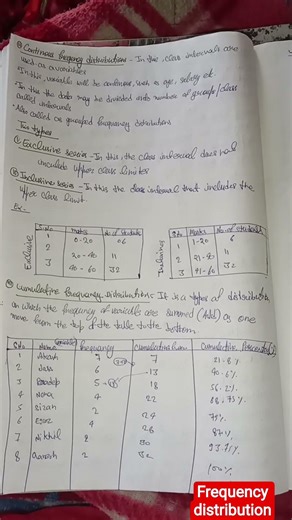 Continuous frequency distributions - In this, class intervals are
used as a variables
In this, variable will be continuous, such as age, salary etc.
In this the data may be divided into number of groups/class
called intervals
Also called as grouped frequency distributions
Two types
Exclusive series - In this, the class interval does not
include upper class limits
Inclusive series - In this the class interval that includes the
upper class limit.
Ex:-
Exclusive
S.no Marks No of students
1 0-20 06
2 20-40 11
3 40-60 32
Inclusive
S.No Marks No of students
1 1-20 6
2 21-40 11
3 41-60 32
Cumulative frequency Distributions It is a types of distribution
in which the frequency of variable are summed (Add) as one
move from the top of the table to the bottom.
S.No Name Frequency Cumulative Cumulative
1 Akash 7 7 21.8%
2 6 13 40.6%
3 Pradeep 5 18 56.2%
4 4 22 68.75%
5 Rizan 2 24 75%
6 4 28 87.%
7 Nikhil 2 30 93.7%
8 Aarush 2 32 100%
Frequency
distribution